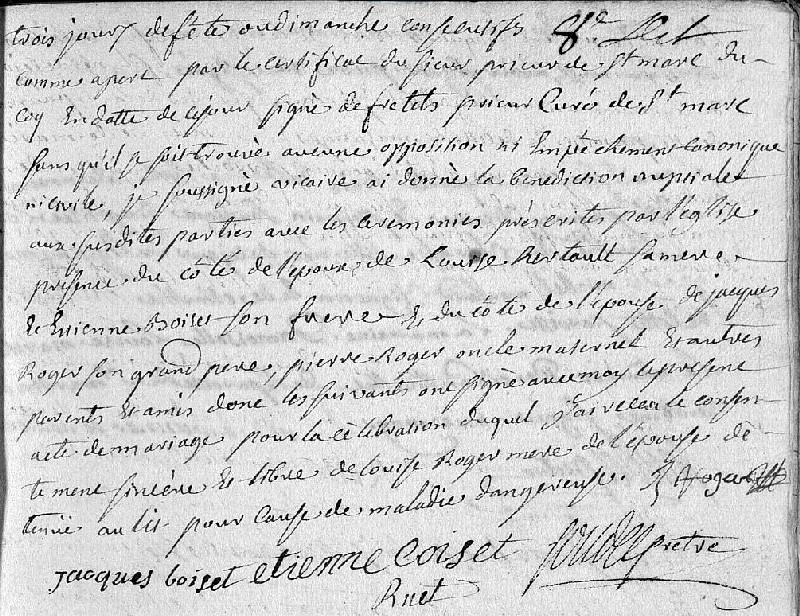 trois jours de fete ou dimanche consecutifs
comme apert par le certificat du sieur prieur de st marc du
coq En datte de ce jour signé defretels prieur Curé de st marc
sans qu'il se soit trouvé aucune opposition ni Empêchement canonique
ni civile, je soussigné vicaire ai donné la benediction nuptiale
aux susdites parties avec les ceremonies préscrites par l'église
présence du côté de l'époux de Louise sa mere
Et Etienne Boiset son frere Et du côté de l'épouse de jacques
Roger son grand pere, pierre Roger oncle maternel Et autres
parents Et amis dont les suivants ont signé avec moy le présent
acte de mariage pour la célébration duquel j'ai receu le consen
tement sincère Et libre de louise Roger mere de l'épouse de
tenüe au lit pour cause de maladie dangereuse. Roger
jacques boiset etienne boiset prétre
Ruet